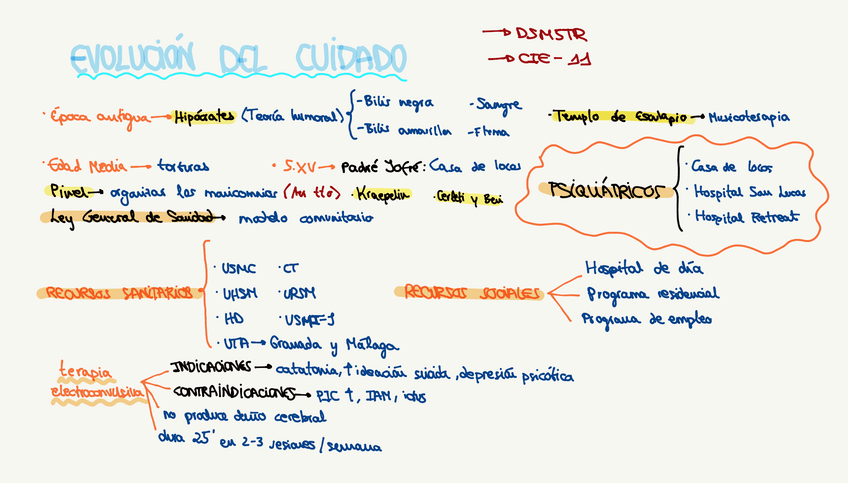 EVOLUCIÓN DEL CUIDADO
→ DSM5TR
→ CIE-11
· Época antigua → Hipócrates (Teoría humoral) - Bilis negra - Sangre
- Bilis amarilla - Flema
· Templo de Esculapio → Musicoterapia
· Edad Media → torturas · S.XV → Padre Jofré: Casa de locos
Pinel → organizar los manicomios · Kraepelin · Cerletti y Bini
Ley General de Sanidad → modelo comunitario
PSIQUIÁTRICOS
· Casa de locos
· Hospital San Lucas
· Hospital Retreat
RECURSOS SANITARIOS
· USMC · CT
· UHSM · URSM
· HD · USMI-J
· UTA → Granada y Málaga
RECURSOS SOCIALES
Hospital de día
Programa residencial
Programa de empleo
terapia
electroconvulsiva
INDICACIONES → catatonia, ↑ ideación suicida, depresión psicótica
CONTRAINDICACIONES → PIC ↑, IAM, ictus
no produce daño cerebral
dura 25' en 2-3 sesiones/semana